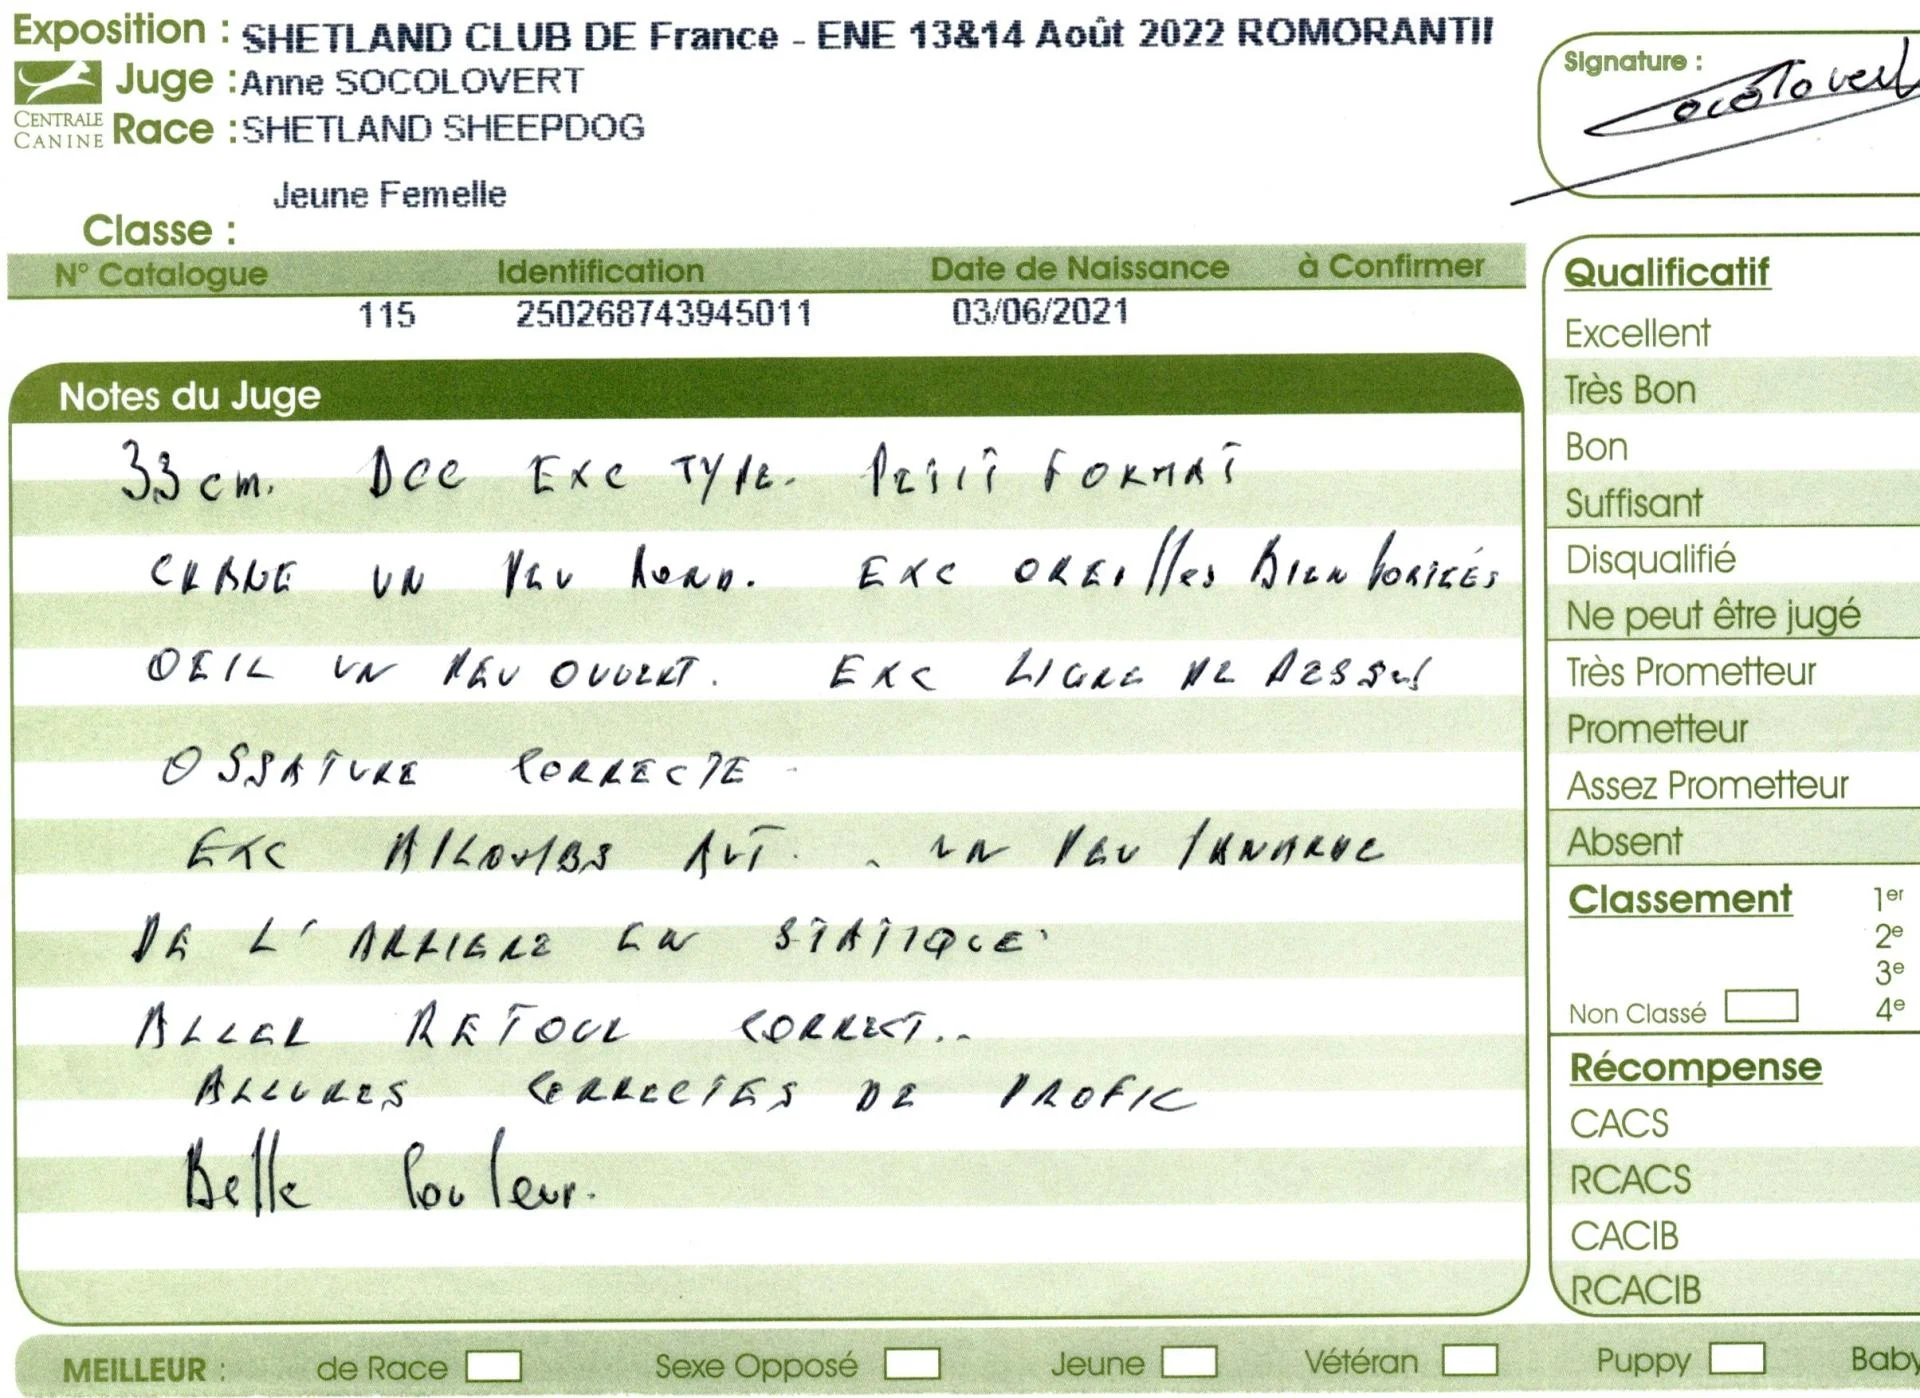 Exposition : SHETLAND CLUB DE France - ENE 13&14 Août 2022 ROMORANTII
Juge : Anne SOCOLOVERT
CENTRALE CANINE
Race : SHETLAND SHEEPDOG
Jeune Femelle
Classe :
N° Catalogue Identification Date de Naissance à Confirmer
115 250268743945011 03/06/2021
Notes du Juge
33 cm. DCC EXC TYPE. PETIT FORMAT
CRANE UN PEU ROND. EXC OREILLES BIEN PORTEES
OEIL UN PEU OUVERT. EXC LIGNE DE DESSUS
OSSATURE CORRECTE
EXC APLOMBS AVT. UN PEU
DE L'ARRIERE EN STATIQUE.
ALLER RETOUR CORRECT..
ALLURES CORRECTES DE PROFIL
Belle Couleur.
Signature :
Socolovert
Qualificatif
Excellent
Très Bon
Bon
Suffisant
Disqualifié
Ne peut être jugé
Très Prometteur
Prometteur
Assez Prometteur
Absent
Classement 1er
2e
3e
Non Classé 4e
Récompense
CACS
RCACS
CACIB
RCACIB
MEILLEUR : de Race Sexe Opposé Jeune Vétéran Puppy Baby